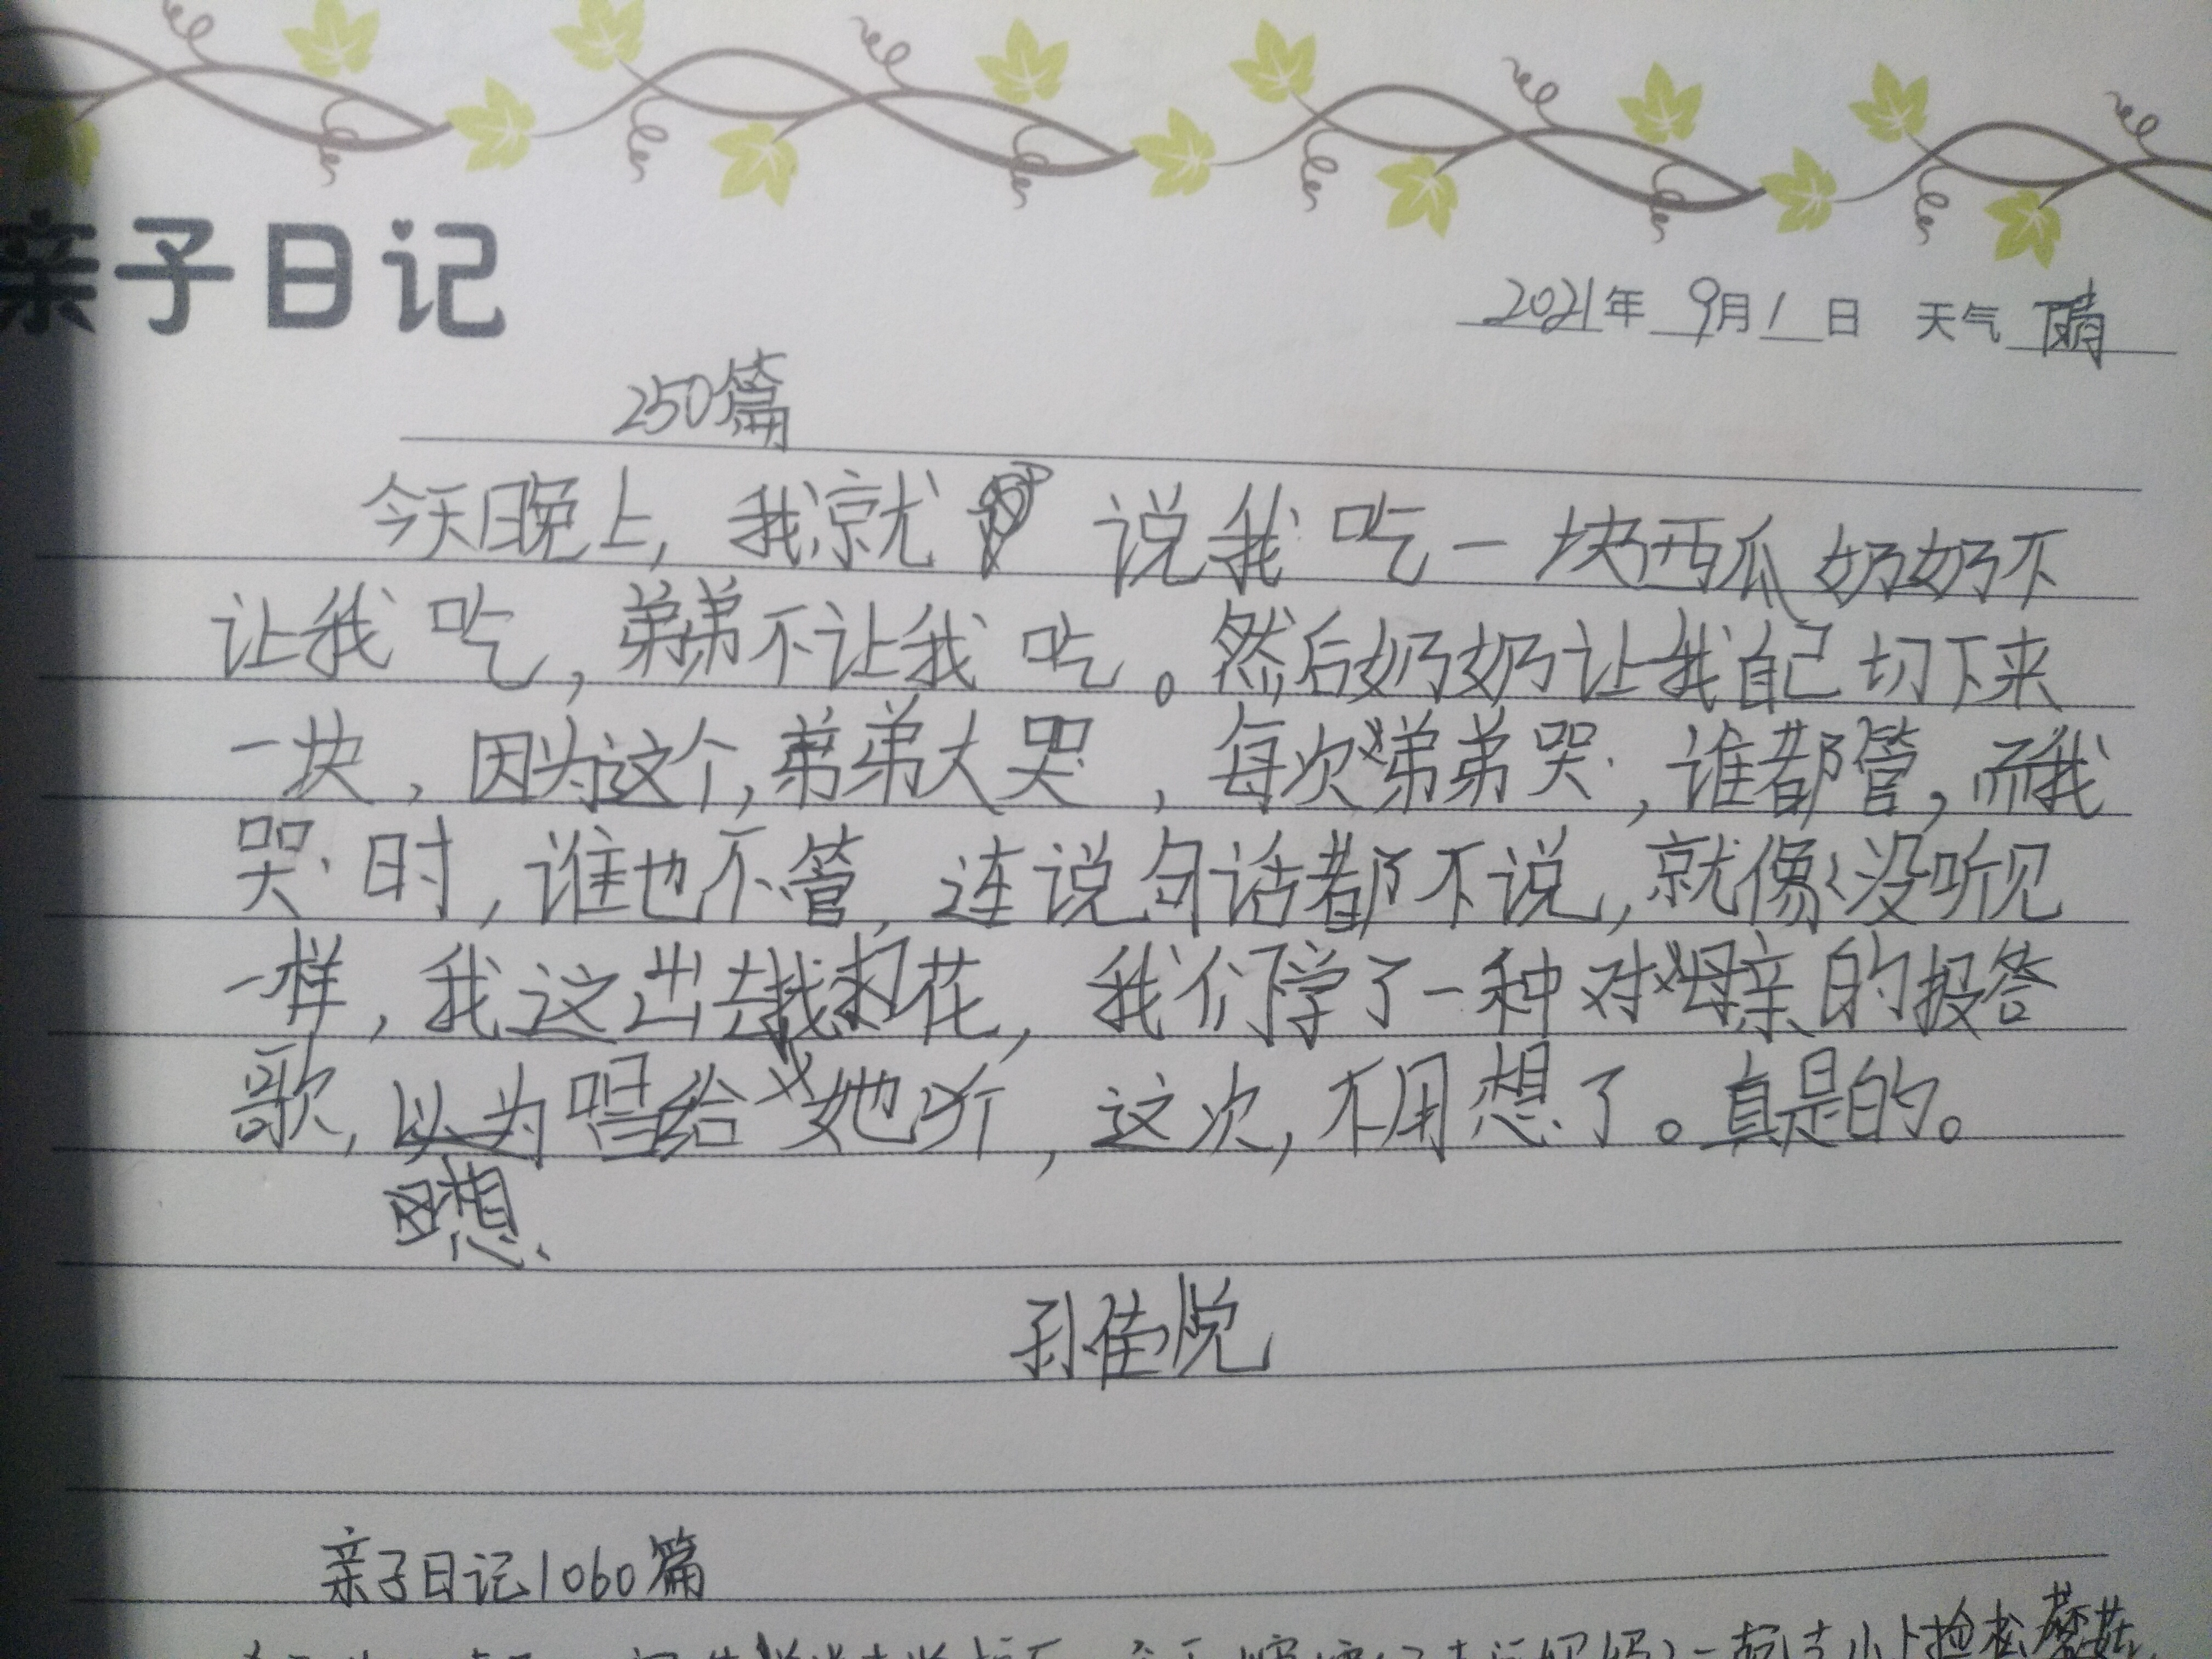 亲子日记
2021年 9月1日 天气 晴
250篇
今天晚上,我就 说我吃一块西瓜,奶奶不
让我吃,弟弟不让我吃。然后奶奶让我自己切下来
一块,因为这个,弟弟大哭,每次弟弟哭,谁都管,而我
哭时,谁也不管,连说句话都不说,就像没听见
一样,我这出去找扣花,我们学了一种对母亲的报答
歌,以为唱给她听,这次,不用想了。真是的。
想
孙佳悦
亲子日记1060篇